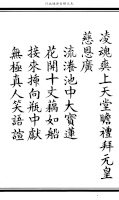 凌魂與上天堂瞻禮拜元皇
慈恩廣
流溱池中大寶蓮
花開十丈藕如船
接來擲向瓶中獻
無極真人笑語諠